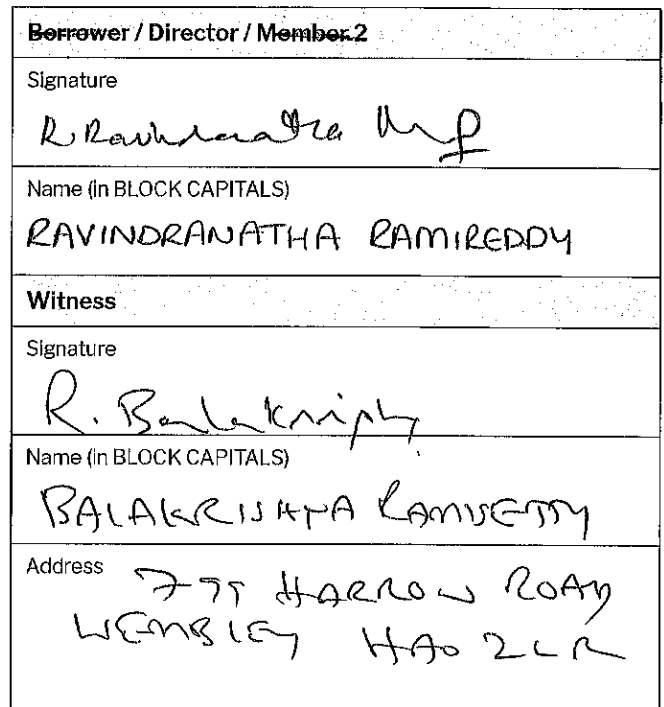 Borrower / Director / Member 2
Signature
R. Ravindranatha
Name (in BLOCK CAPITALS)
RAVINDRANATHA RAMIREDDY
Witness
Signature
R. Balakrishna
Name (in BLOCK CAPITALS)
BALAKRISHNA RAMISETTY
Address 775 HARROW ROAD
WEMBLEY HA0 2LR